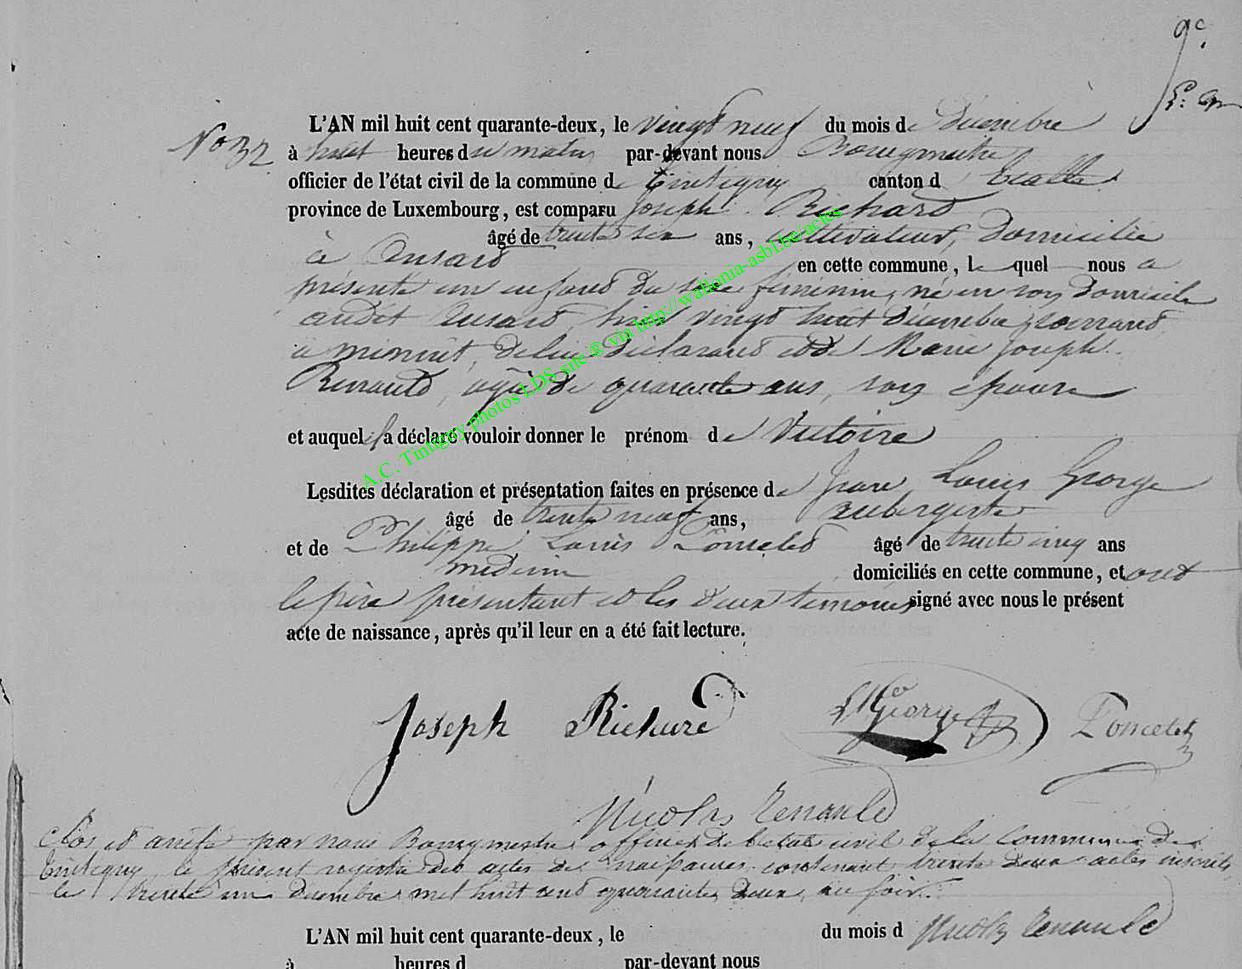 9c.
No 32
L'AN mil huit cent quarante-deux, le vingt neuf du mois de Décembre
à huit heures du matin par-devant nous Bourgmestre
officier de l'état civil de la commune de Tintigny canton d' Etalle
province de Luxembourg, est comparu Joseph Richard
âgé de trente six ans, cultivateur, domicilié
à Ansart en cette commune, lequel nous a
présenté un enfant du sexe féminin, né en son domicile
audit Ansart, hier vingt huit décembre courant
à minuit, de lui déclarant et de Marie Joseph
Renauld, agée de quarante ans, son épouse
et auquel il a déclaré vouloir donner le prénom de Victoire
Lesdites déclaration et présentation faites en présence de Jean Louis George
âgé de trente neuf ans, aubergiste
et de Philippe Louis Poncelet âgé de trente cinq ans
médecin domiciliés en cette commune, et ont
le père présentant et les deux temoins signé avec nous le présent
acte de naissance, après qu'il leur en a été fait lecture.
Joseph Richard George Poncelet
Nicolas Renauld
Clos et arrêté par nous Bourgmestre officier de l'etat civil de la Commune de
Tintigny, le présent registre des actes de naissances, contenant trente deux actes inscrits
le trente un Décembre mil huit cent quarante deux, au soir.
L'AN mil huit cent quarante-deux, le du mois d Nicolas Renauld
à heures d par-devant nous
A.C. Tintigny photos LDS site ® via http://wallonia-asbl.be/actes